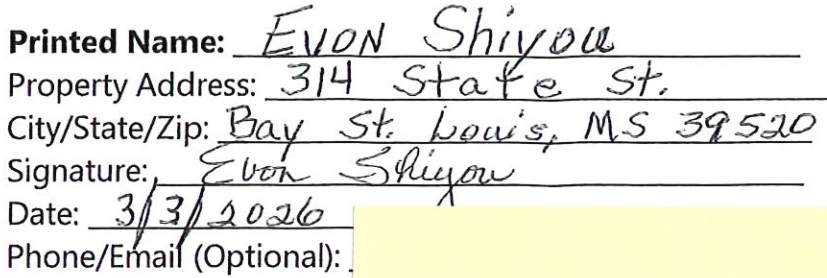 Printed Name: Evon Shiyou
Property Address: 314 State St.
City/State/Zip: Bay St. Louis, MS 39520
Signature: Evon Shiyou
Date: 3/3/2026
Phone/Email (Optional):